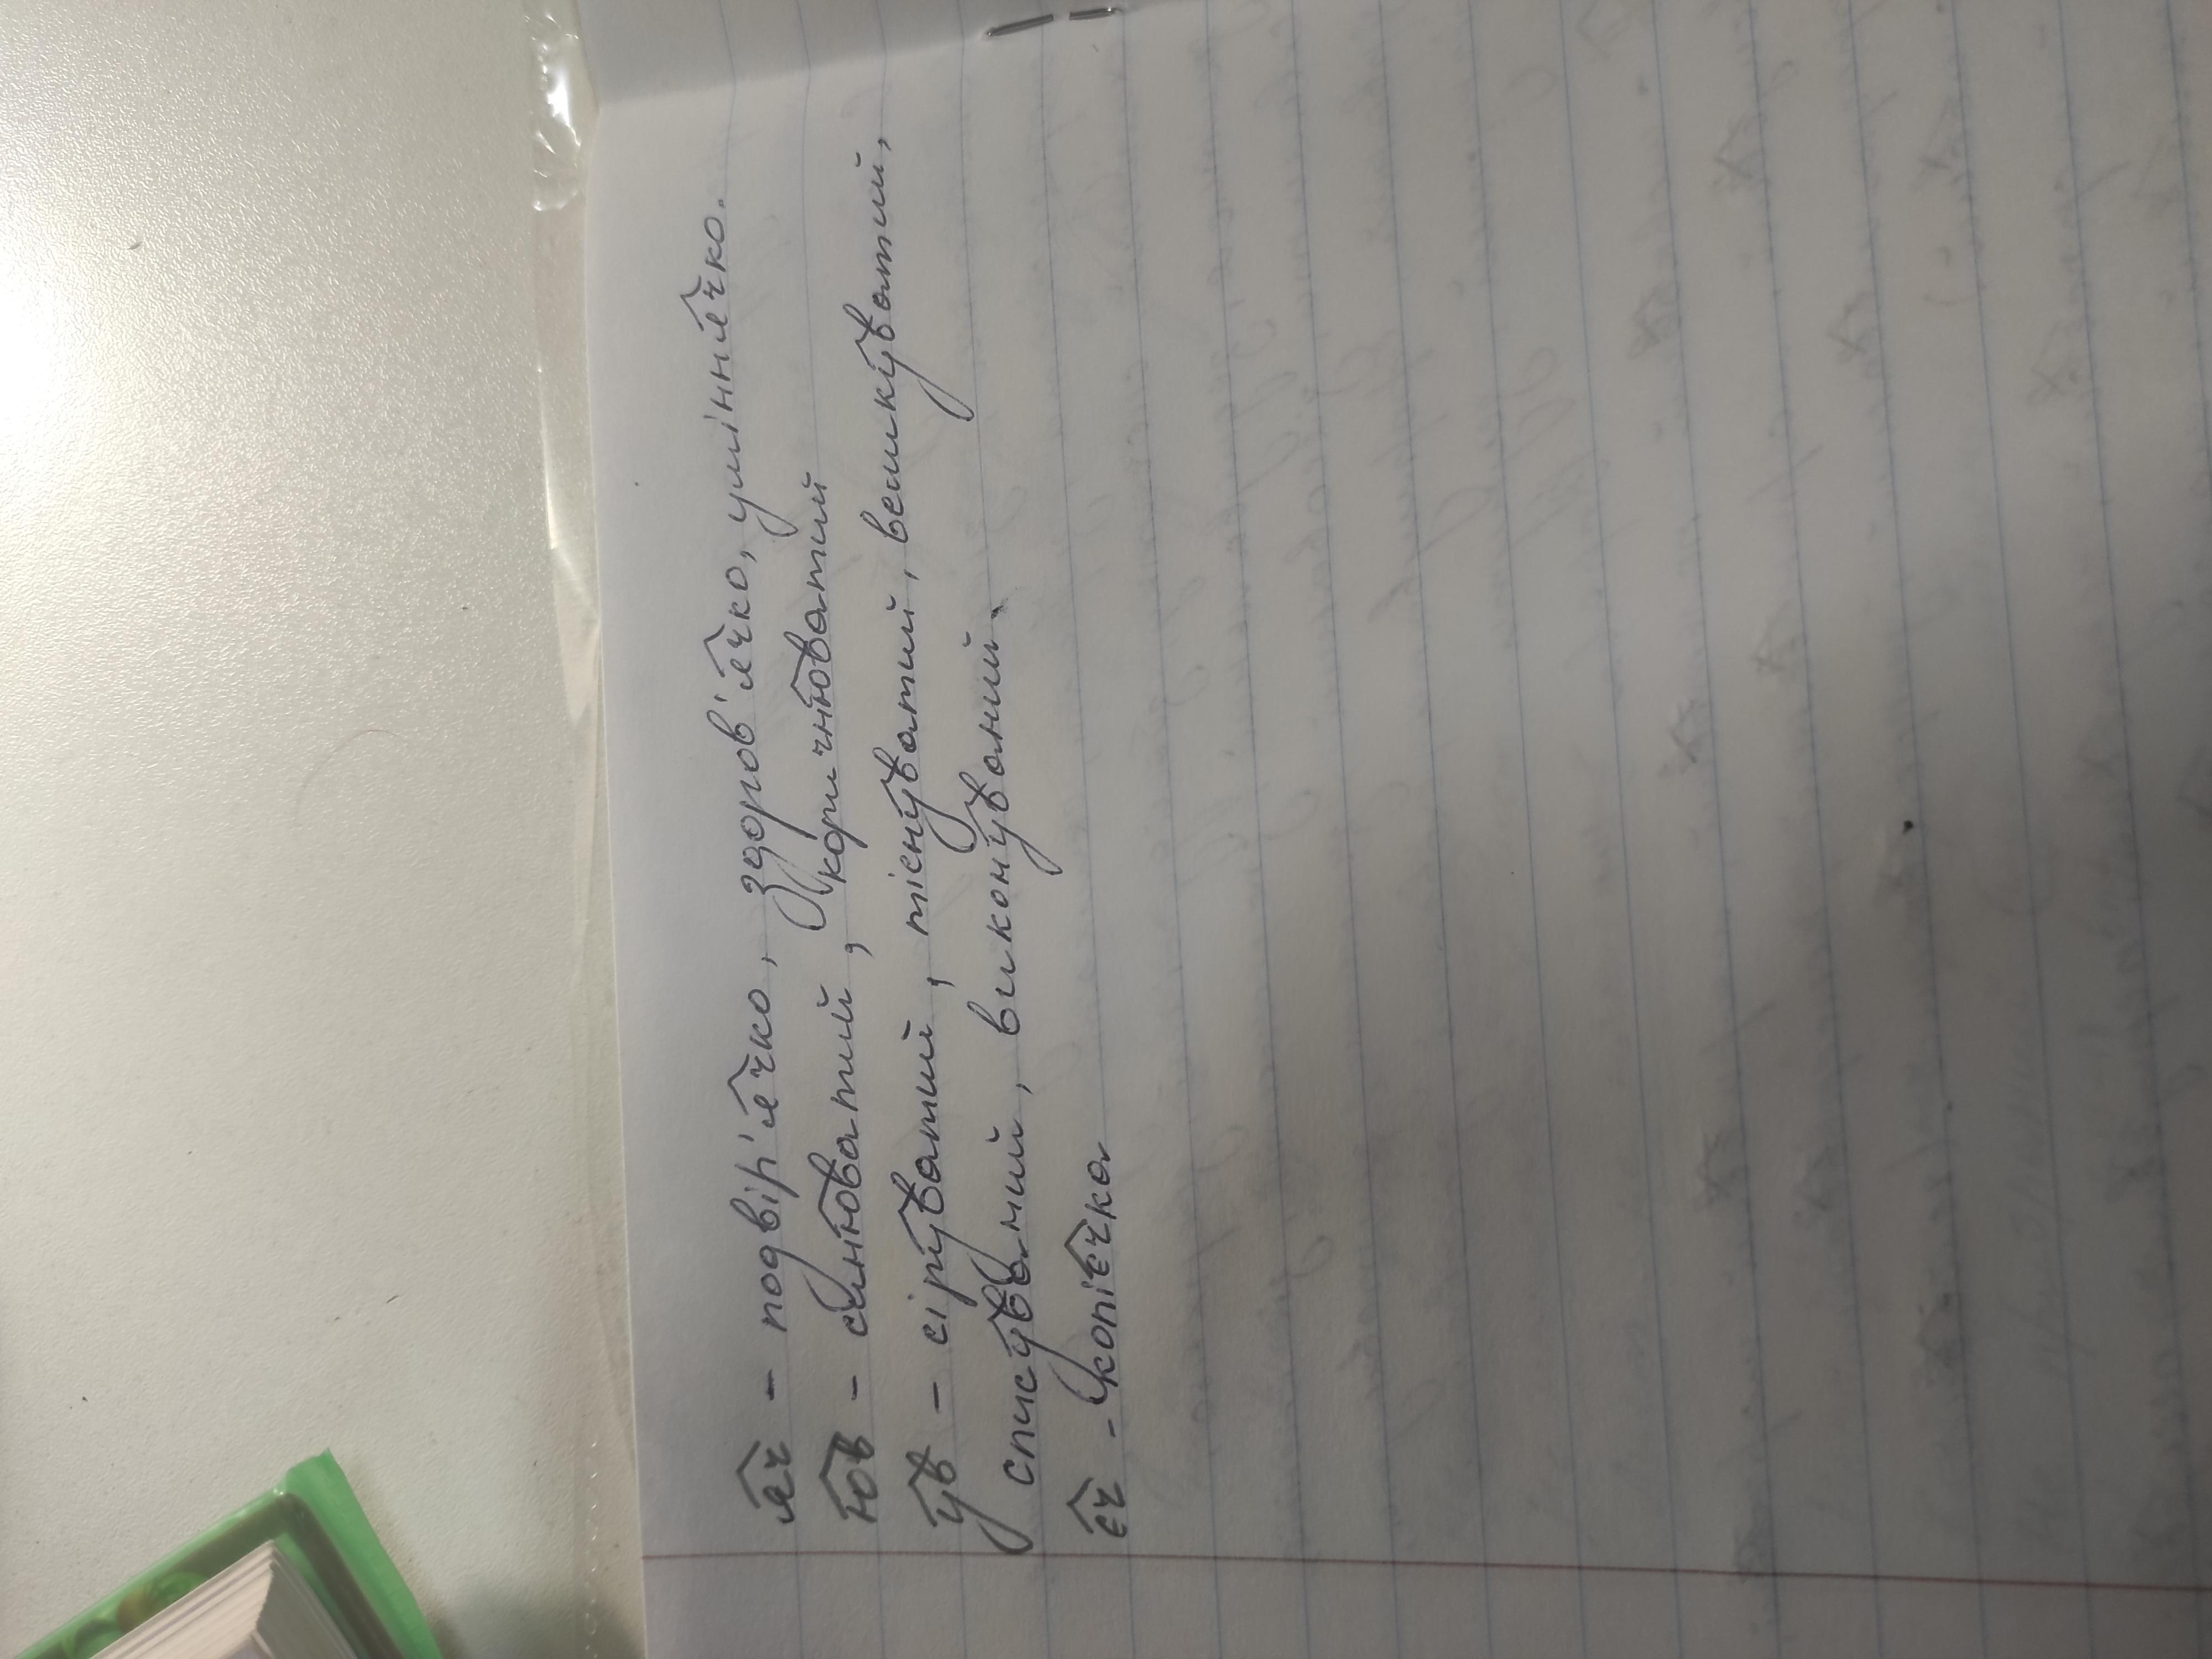 яч - подвір'ячко, здоров'ячко, уміннячко.
юв - синюватий, коричнюватий
ув - сіруватий, тіснуватий, великуватий,
списуваний, виконуваний.
єч - копієчка